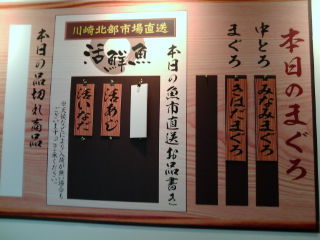 本日のまぐろ
中とろ みなみまぐろ
まぐろ きはだまぐろ
川崎北部市場直送
活鮮魚
本日の魚市直送お品書き
活あじ
活いなだ
本日の品切れ商品